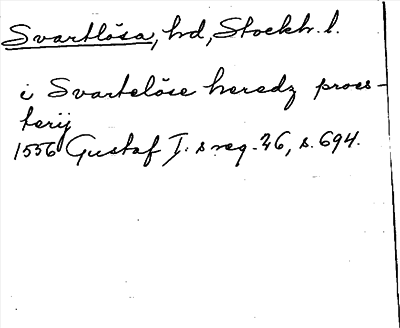 Svartlösa, hd, Stockh. l.
i Svartelöse heredz proes-
terij
1556 Gustaf I:s reg. 26, s. 694.